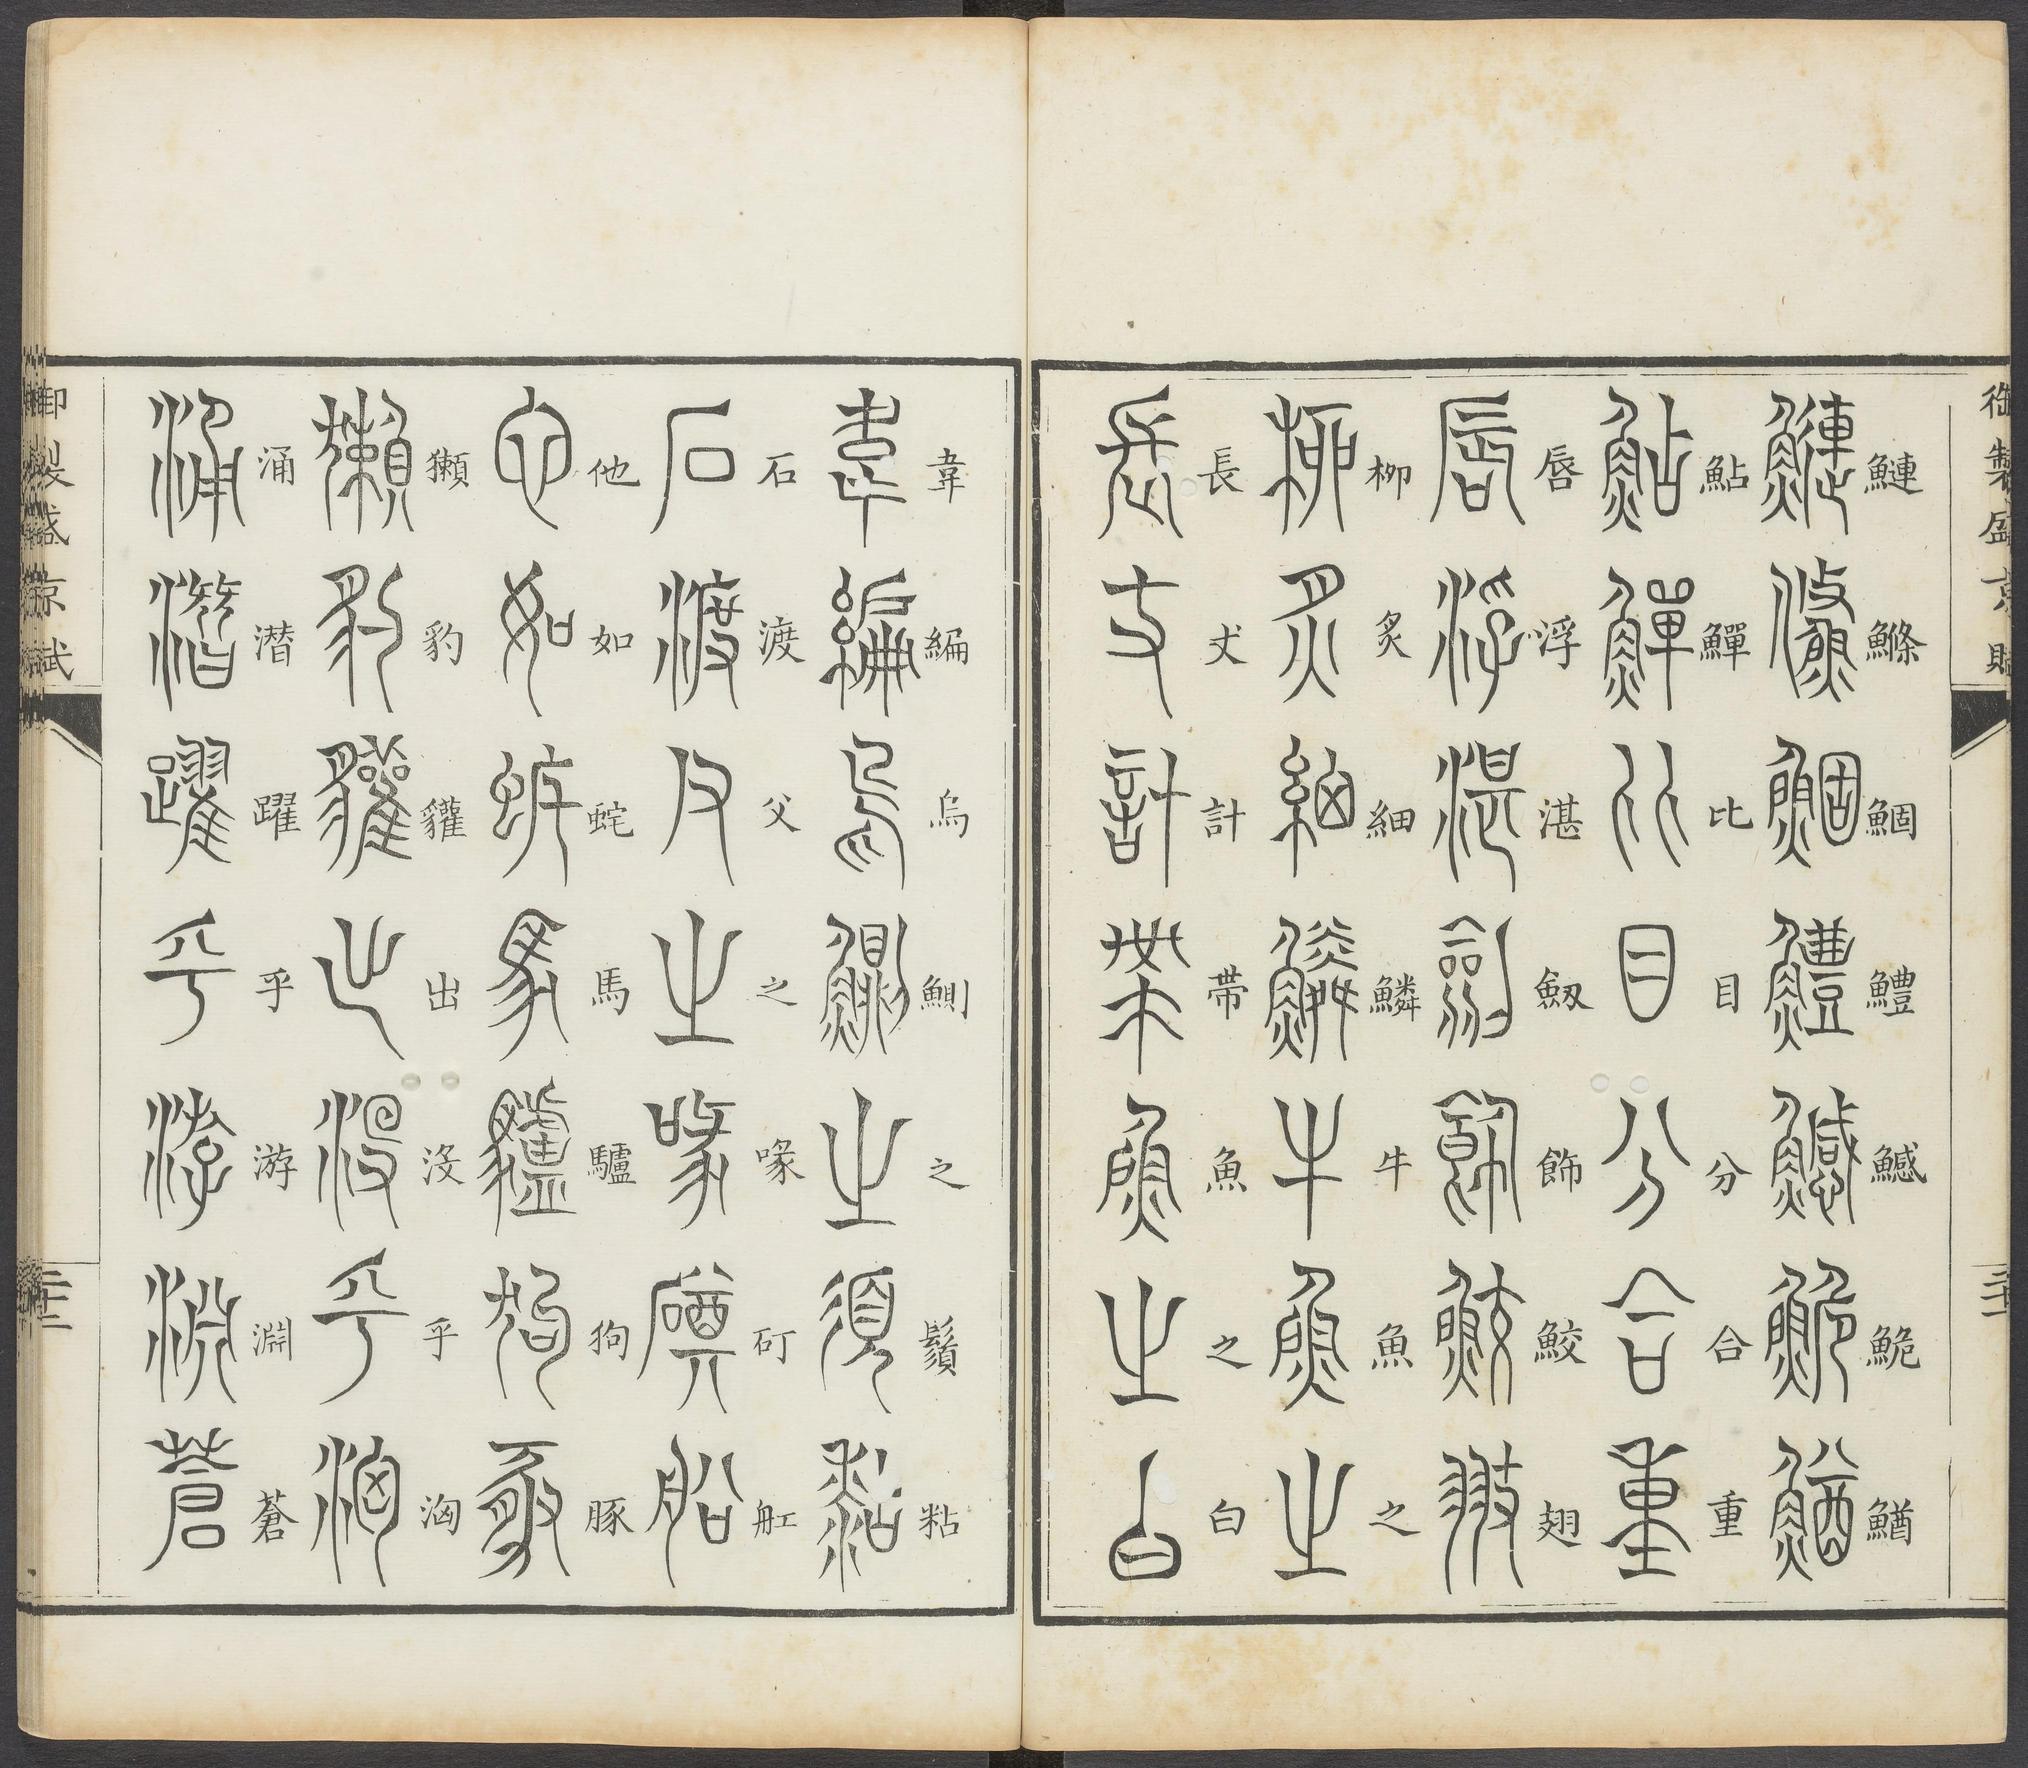 御製盛京賦
二十一
鰱鰷鯝鱧鱤鮠鰌
鮎鱓比目分合重
唇浮湛劔飾鮫翅
柳炙細鱗牛魚之
長丈計帶魚之白
韋編烏鰂之鬚粘
石渡父之喙矴舡
他如蛇馬驢狗豚
獺豹貛出沒乎洶
涌潛躍乎游淵蒼
御製盛京賦
二十二